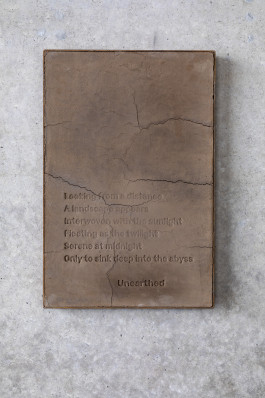 Looking from a distance
A landscape appears
Interwoven with the sunlight
Floating as the twilight
Serene at midnight
Only to sink deep into the abyss
Unearthed